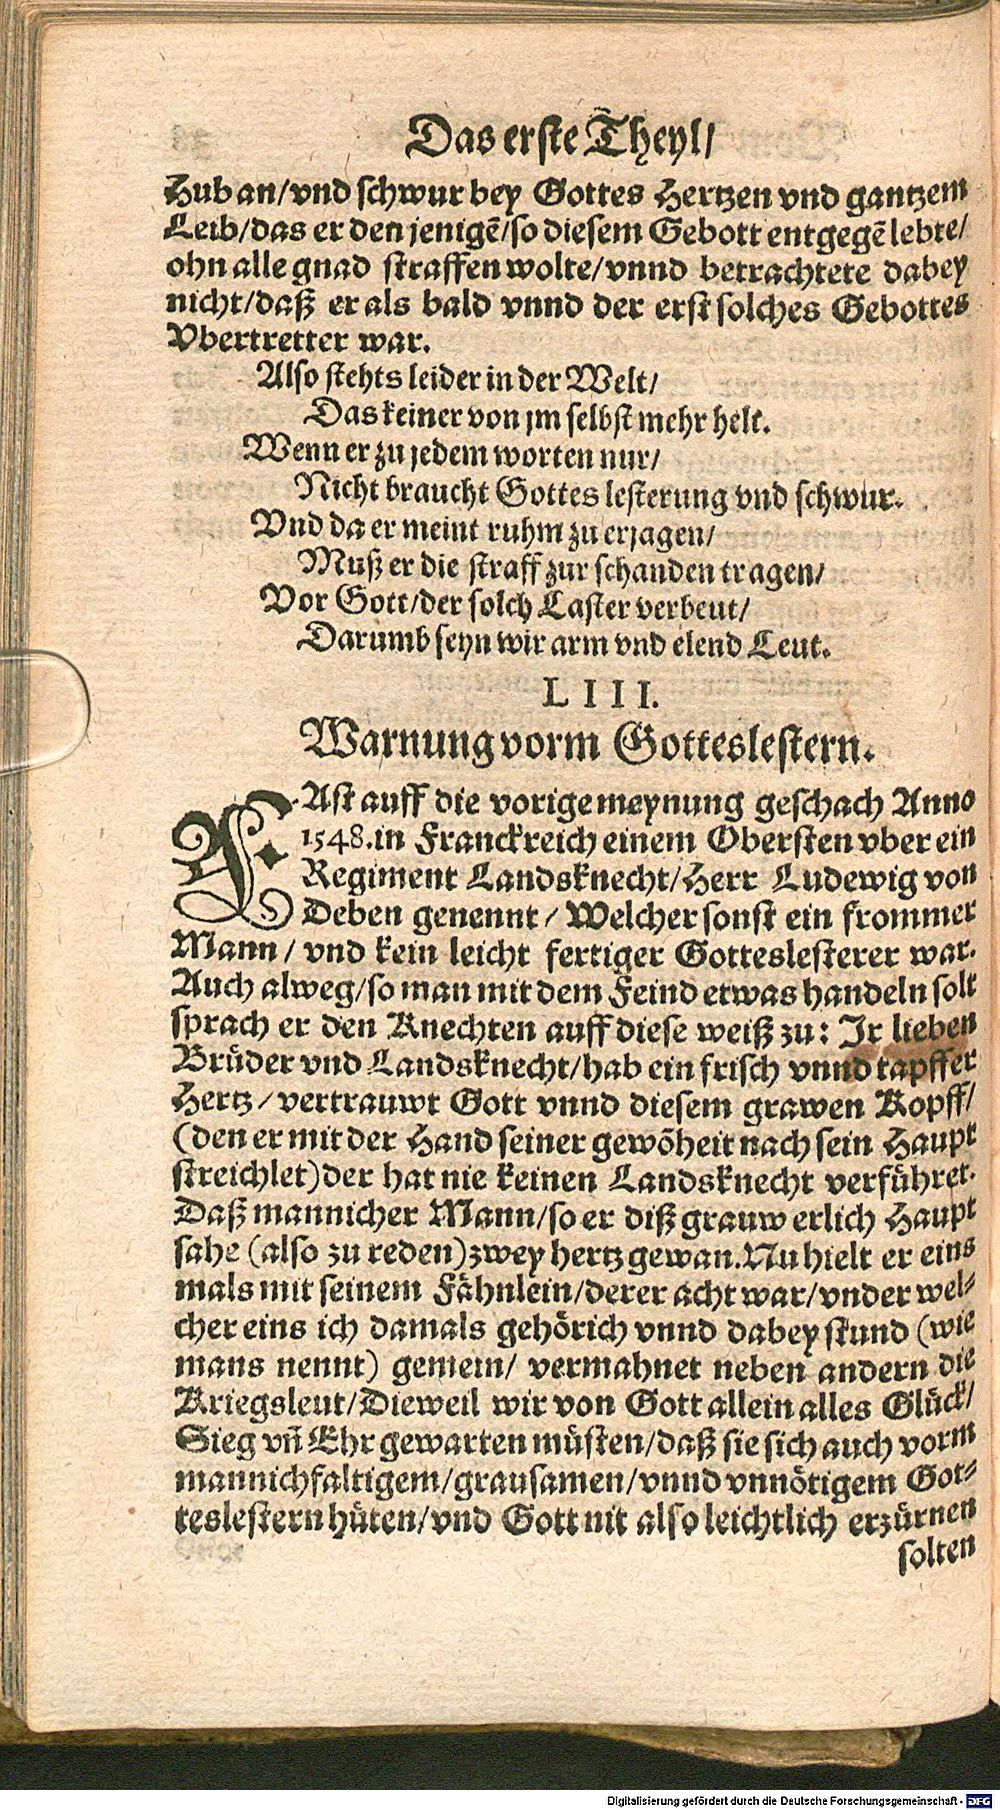 Das erste Theyl/
Hub an/vnd schwur bey Gottes Hertzen vnd gantzem
Leib/das er den jenigē/so diesem Gebott entgegē lebte/
ohn alle gnad straffen wolte/vnnd betrachtete dabey
nicht/daß er als bald vnnd der erst solches Gebottes
Vbertretter war.
Also stehts leider in der Welt/
Das keiner von jm selbst mehr helt.
Wenn er zu jedem worten nur/
Nicht braucht Gottes lesterung vnd schwur.
Vnd da er meint ruhm zu erjagen/
Muß er die straff zur schanden tragen/
Vor Gott/der solch Laster verbeut/
Darumb seyn wir arm vnd elend Leut.
LIII.
Warnung vorm Gotteslestern.
FAst auff die vorige meynung geschach Anno
1548. in Franckreich einem Obersten vber ein
Regiment Landsknecht/Herr Ludewig von
Deben genennt/ Welcher sonst ein frommer
Mann/ vnd kein leicht fertiger Gotteslesterer war.
Auch alweg/so man mit dem Feind etwas handeln solt
sprach er den Knechten auff diese weiß zu: Ir lieben
Brüder vnd Landsknecht/hab ein frisch vnnd tapffer
Hertz/ vertrauwt Gott vnnd diesem grawen Kopff/
(den er mit der Hand seiner gewōheit nach sein Haupt
streichlet) der hat nie keinen Landsknecht verführet.
Daß mannicher Mann/so er diß grauw erlich Haupt
sahe (also zu reden) zwey hertz gewan. Nu hielt er eins
mals mit seinem Fähnlein/derer acht war/vnder wel⸗
cher eins ich damals gehörich vnnd dabey stund (wie
mans nennt) gemein/ vermahnet neben andern die
Kriegsleut/Dieweil wir von Gott allein alles Glück/
Sieg vñ Ehr gewarten müsten/daß sie sich auch vorm
mannichfaltigem/grausamen/vnnd vnnötigem Got⸗
teslestern hüten/vnd Gott nit also leichtlich erzürnen
solten
Digitalisierung gefördert durch die Deutsche Forschungsgemeinschaft - DFG